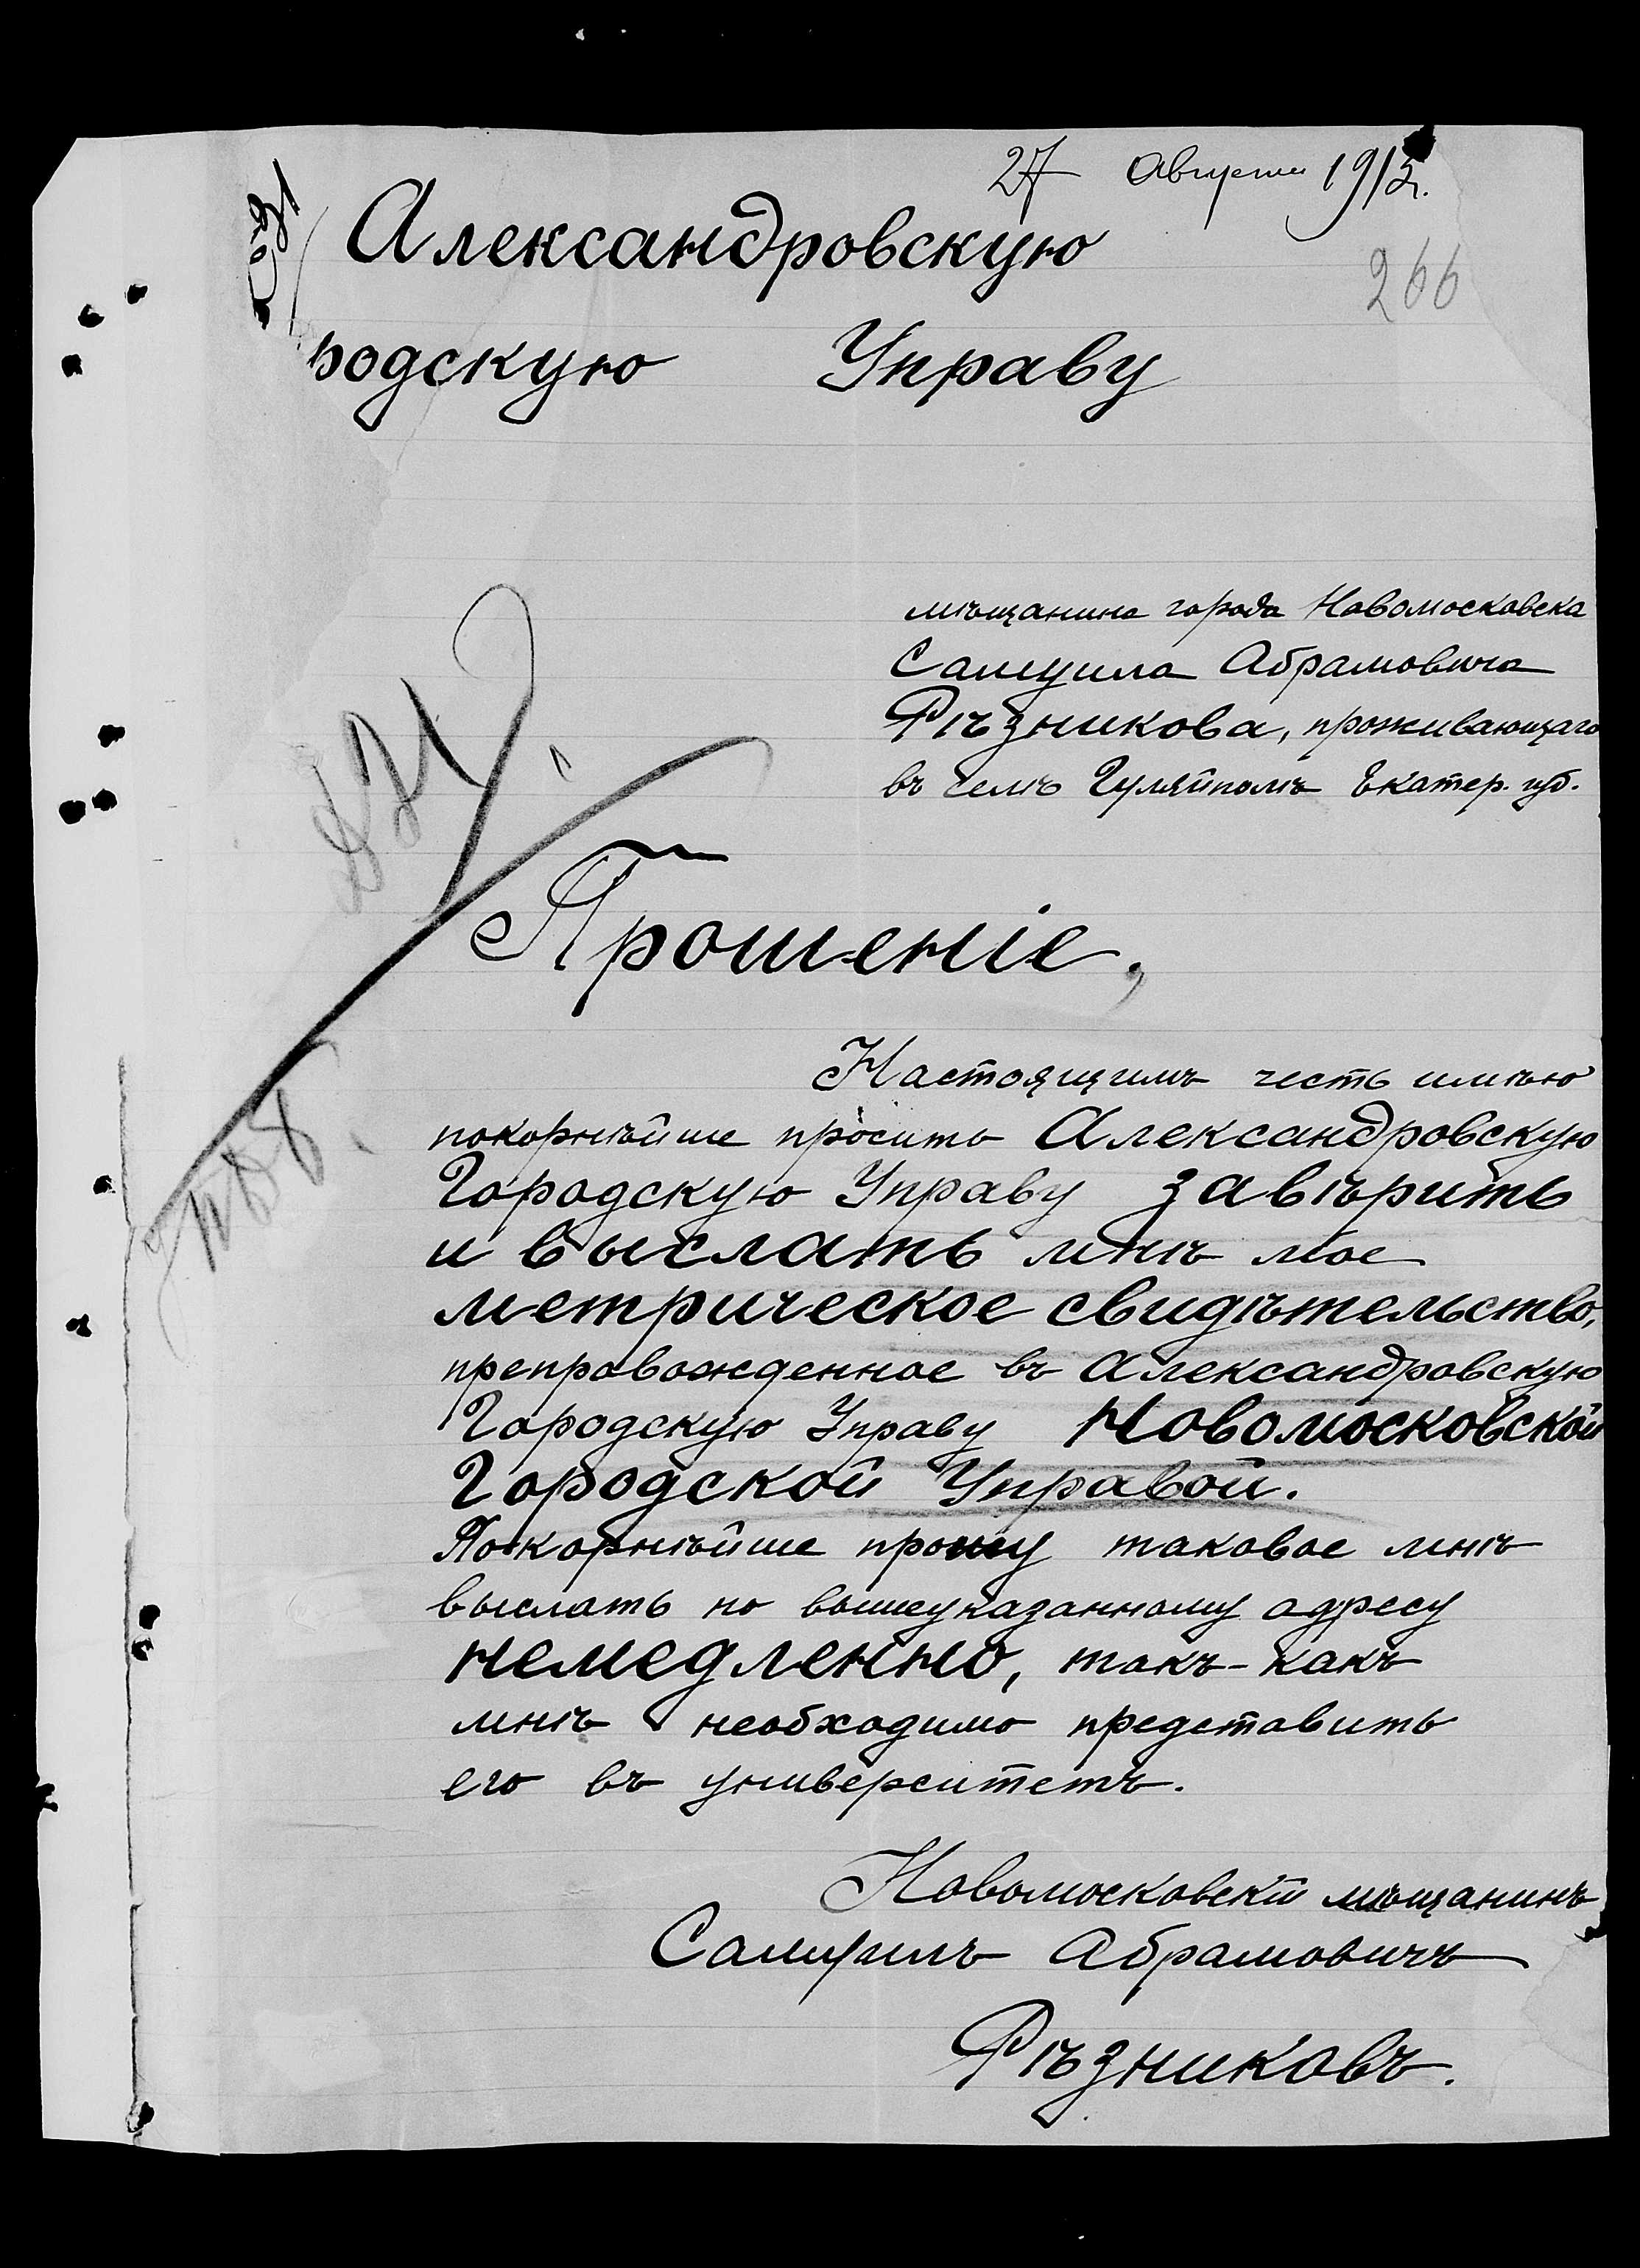 27 Августа 1912.
Александровскую
266
родскую Управу
мѣщанина города Новомосковска
Самуила Абрамовича
Рѣзникова, проживающаго
въ селѣ Гуляйполѣ Екатер. губ.
Прошеніе,
Настоящимъ честь имѣю
покорнѣйше просить Александровскую
Городскую Управу завѣрить
и выслать мнѣ мое
метрическое свидѣтельство,
препровожденное въ Александровскую
Городскую Управу Новомосковской
Городской Управой.
Покорнѣйше прошу таковое мнѣ
выслать по вышеуказанному адресу
немедленно, такъ-какъ
мнѣ необходимо представить
его въ университетъ.
Новомосковскій мѣщанинъ
Самуилъ Абрамовичъ
Рѣзниковъ.